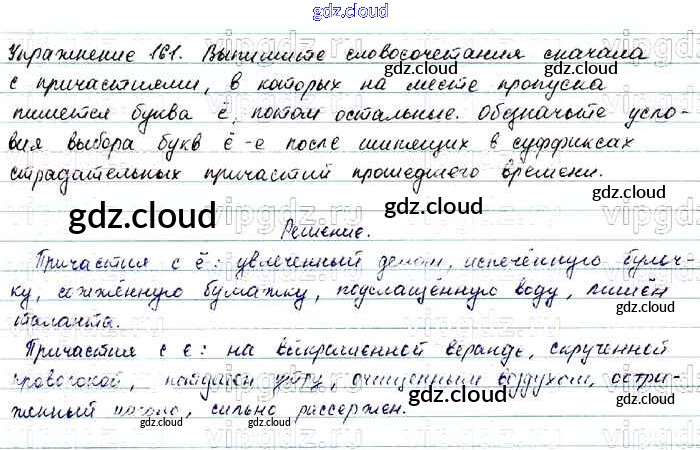 gdz.cloud
Упражнение 161. Выпишите словосочетания сначала
с причастиями, в которых на месте пропуска
пишется буква ё, потом остальные. Обозначьте усло-
вия выбора букв ё-е после шипящих в суффиксах
страдательных причастий прошедшего времени.
Решение.
Причастия с ё: увлечённый делом, испечённую булоч-
ку, сожжённую бумажку, подслащённую воду, лишён
таланта.
Причастия с е: на выкрашенной веранде, скрученной
проволокой, очищенным воздухом, остри-
женный наголо, сильно рассержен.